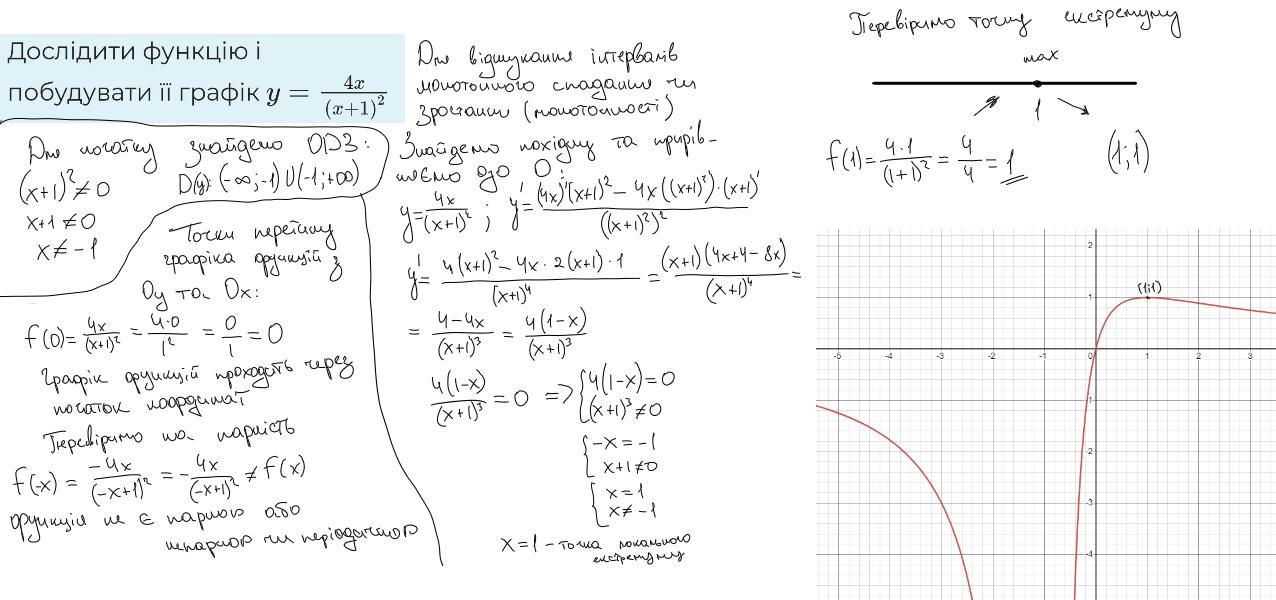 Дослідити функцію і
побудувати її графік y = 4x/(x+1)²
Для початку знайдемо ОДЗ:
(x+1)² ≠ 0
D(y): (-∞;-1)∪(-1;+∞)
x+1 ≠ 0
x ≠ -1
Точки перетину
графіка функцій з
Oy та Ox:
f(0) = 4x/(x+1)² = 4·0/1² = 0/1 = 0
Графік функцій проходить через
початок координат
Перевіримо на парність
f(-x) = -4x/(-x+1)² = -4x/(-x+1)² ≠ f(x)
функція не є парною або
непарною чи періодичною
Для відшукання інтервалів
монотонного спадання чи
зростання (монотонності)
Знайдемо похідну та прирів-
няємо до 0:
y = 4x/(x+1)² ; y' = ((4x)'(x+1)² - 4x((x+1)²)'·(x+1)')/((x+1)²)²
y' = (4(x+1)² - 4x·2(x+1)·1)/(x+1)⁴ = ((x+1)(4x+4-8x))/(x+1)⁴ =
= (4-4x)/(x+1)³ = 4(1-x)/(x+1)³
4(1-x)/(x+1)³ = 0 => { 4(1-x) = 0
(x+1)³ ≠ 0
{ -x = -1
x+1 ≠ 0
{ x = 1
x ≠ -1
x = 1 - точка локального
екстремуму
Перевіримо точку екстремуму
max
1
f(1) = 4·1/(1+1)² = 4/4 = 1
(1;1)
2
(1;1)
1
-5 -4 -3 -2 -1 0 1 2 3
-1
-2
-3
-4